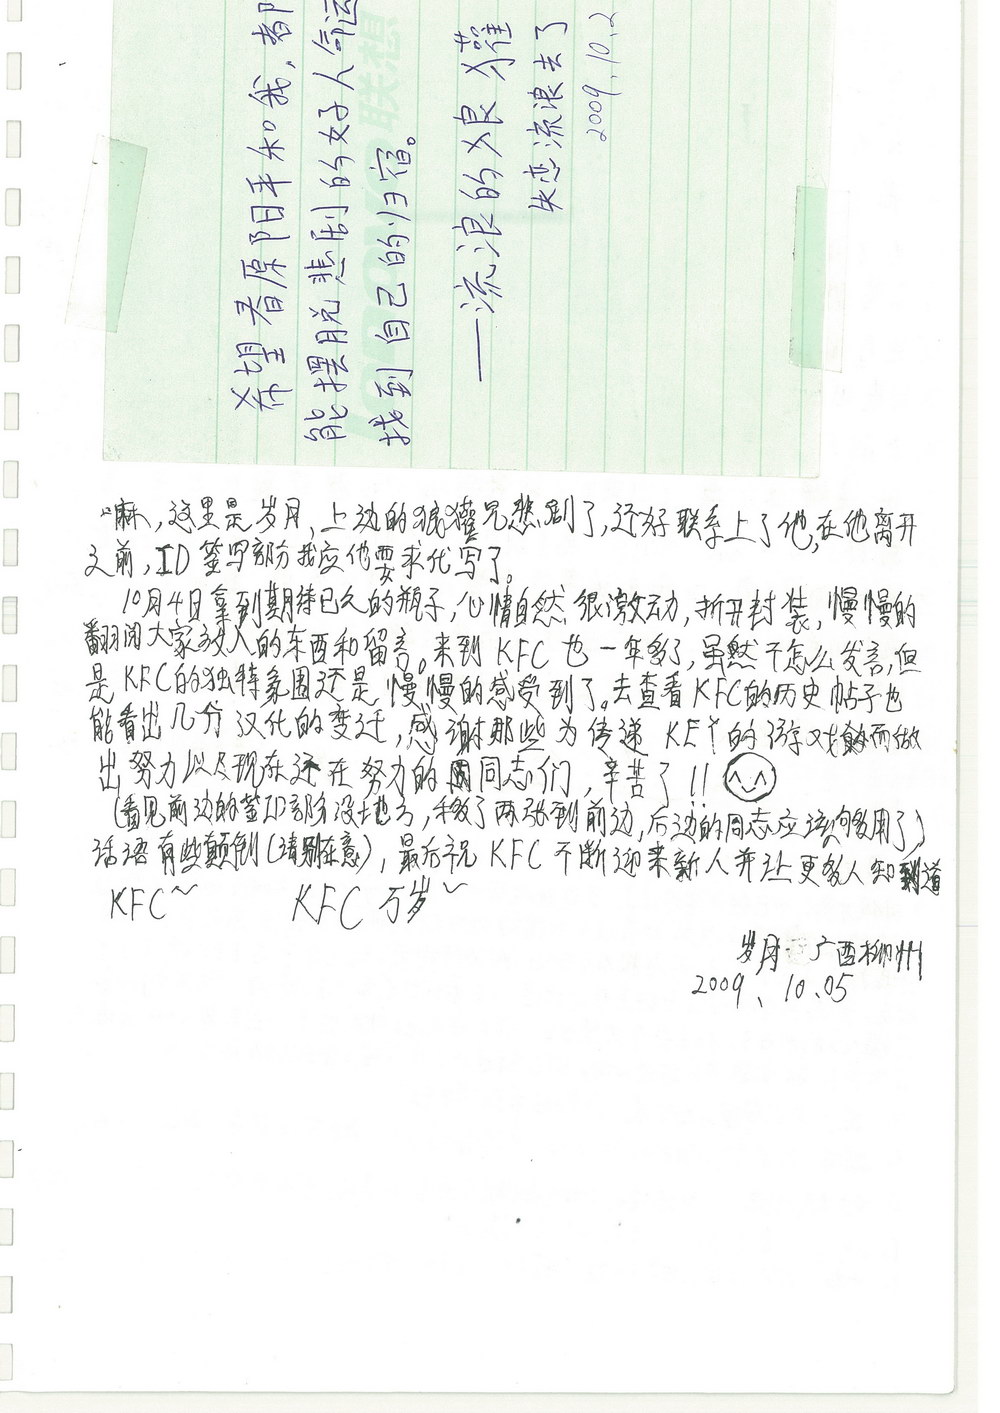 希望春原阳平和我，都
能摆脱悲剧的好人命运
找到自己的归宿。
——流浪的狼獾
失恋流浪去了
2009.10.2
联想
嘛，这里是岁月，上边的狼獾兄悲剧了，还好联系上了他，在他离开
之前，ID签写部分我应他要求代写了。
10月4日拿到期待已久的瓶子，心情自然很激动，拆开封装，慢慢的
翻阅大家放入的东西和留言。来到KFC也一年多了，虽然不怎么发言，但
是KFC的独特氛围还是慢慢的感受到了。去查看KFC的历史帖子也
能看出几分汉化的变迁，感谢那些为传递KEY的游戏而做
出努力以及现在还在努力的同志们，辛苦了!!
(看见前边的签ID部分没地方，移了两张到前边，后边的同志应该够用了)
话语有些颠倒(请别在意)，最后祝KFC不断迎来新人并让更多人知道
KFC~ KFC万岁~
岁月 广西柳州
2009、10.05